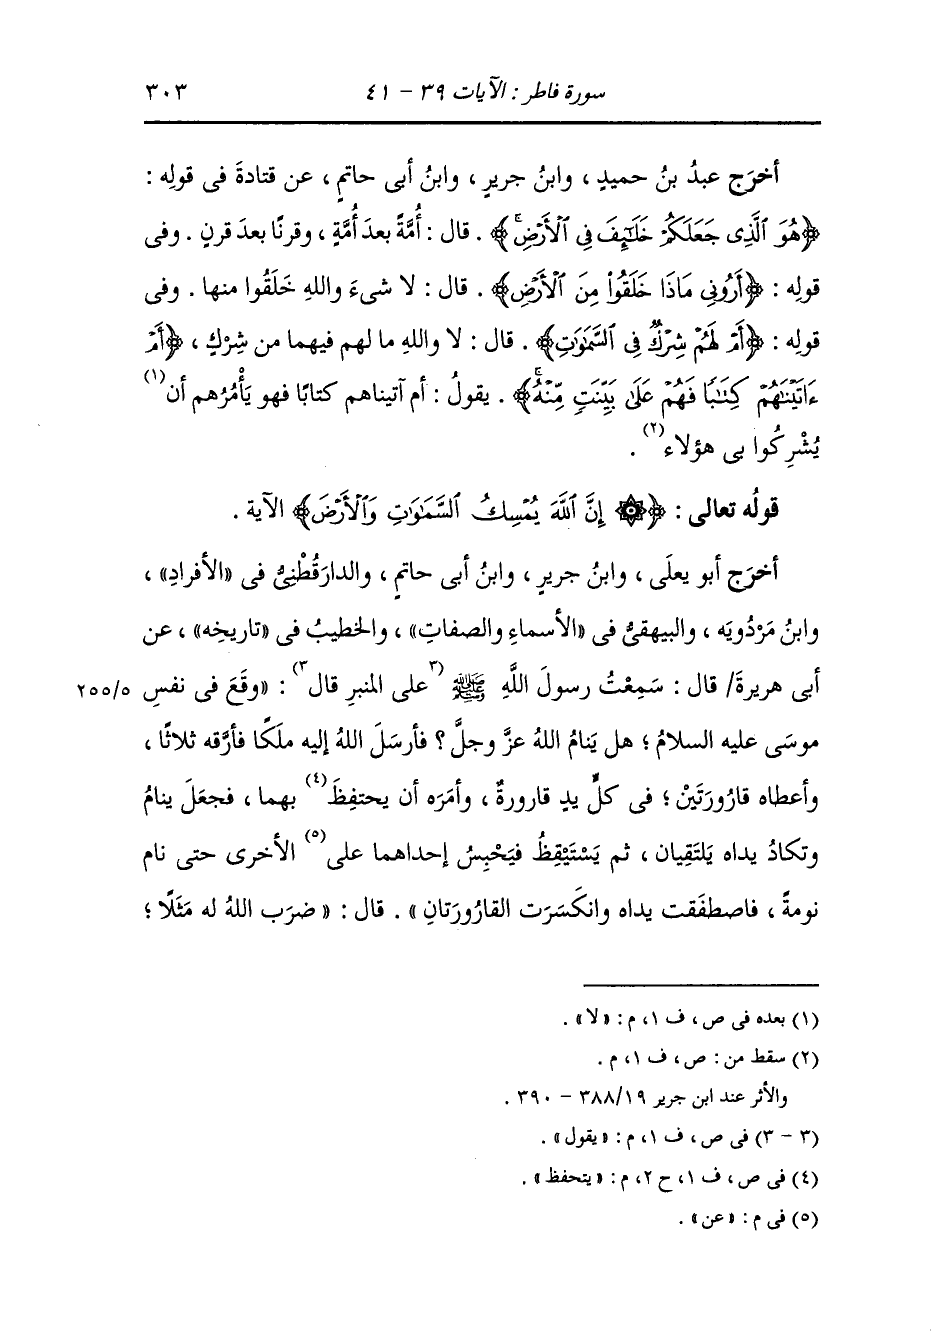 سورة فاطر : الآيات ٣٩ - ٤١ ٣٠٣
أخرَج عبدُ بنُ حميدٍ ، وابنُ جريرٍ ، وابنُ أبى حاتمٍ ، عن قتادةَ فى قولِه :
﴿هُوَ ٱلَّذِى جَعَلَكُمْ خَلَٰٓئِفَ فِى ٱلْأَرْضِۚ﴾ . قال : أُمَّةً بعدَ أُمَّةٍ ، وقرنًا بعدَ قرنٍ . وفى
قولِه : ﴿أَرُونِى مَاذَا خَلَقُوا۟ مِنَ ٱلْأَرْضِ﴾ . قال : لا شىءَ واللهِ خَلَقُوا منها . وفى
قولِه : ﴿أَمْ لَهُمْ شِرْكٌ فِى ٱلسَّمَٰوَٰتِ﴾ . قال : لا واللهِ ما لهم فيهما من شِرْكٍ ، ﴿أَمْ
ءَاتَيْنَٰهُمْ كِتَٰبًا فَهُمْ عَلَىٰ بَيِّنَتٍ مِّنْهُۚ﴾ . يقولُ : أم آتيناهم كتابًا فهو يَأْمُرُهم أن(١)
يُشْرِكُوا بى هؤلاء(٢) .
قولُه تعالى : ﴿۞ إِنَّ ٱللَّهَ يُمْسِكُ ٱلسَّمَٰوَٰتِ وَٱلْأَرْضَ﴾ الآية .
أخرَج أبو يعلَى ، وابنُ جريرٍ ، وابنُ أبى حاتمٍ ، والدارَقُطْنِىُّ فى «الأفرادِ» ،
وابنُ مَرْدُويَه ، والبيهقىُّ فى «الأسماءِ والصفاتِ» ، والخطيبُ فى «تاريخِه» ، عن
أبى هريرةَ/ قال : سَمِعْتُ رسولَ اللَّهِ ﷺ (٣على المنبرِ قال٣) : «وقَعَ فى نفسِ ٢٥٥/٥
موسَى عليه السلامُ ؛ هل يَنامُ اللهُ عزَّ وجلَّ ؟ فأرسَلَ اللهُ إليه ملَكًا فأرَّقه ثلاثًا ،
وأعطاه قارُورَتَيْنْ ؛ فى كلِّ يدٍ قارورةٌ ، وأمَرَه أن يحتفِظَ(٤) بهما ، فجعَلَ ينامُ
وتكادُ يداه يَلتَقِيان ، ثم يَسْتَيْقِظُ فيَحْبِسُ إحداهما على(٥) الأخرى حتى نام
نومةً ، فاصطفَقت يداه وانكَسَرَت القارُورَتانِ» . قال : «ضرَب اللهُ له مَثَلًا ؛
(١) بعده فى ص ، ف ١، م : «لا» .
(٢) سقط من : ص ، ف ١، م .
والأثر عند ابن جرير ٣٨٨/١٩ - ٣٩٠ .
(٣ - ٣) فى ص ، ف ١، م : «يقول» .
(٤) فى ص ، ف ١، ح ٢، م : «يتحفظ» .
(٥) فى م : «عن» .